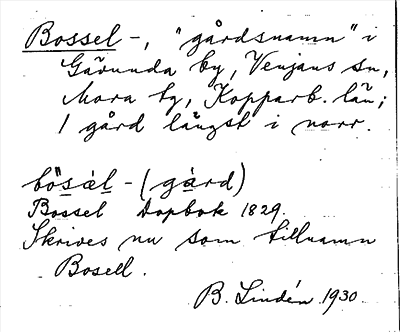 Bossel-, "gårdsnamn" i
Gävunda by, Venjans sn,
Mora tg, Kopparb. län;
1 gård längst i norr.
bŏ́s̲àl̲ - (gà̲rd)
Bossel Dopbok 1829.
Skrives nu som tillnamn
Bosell.
B. Lindén. 1930.